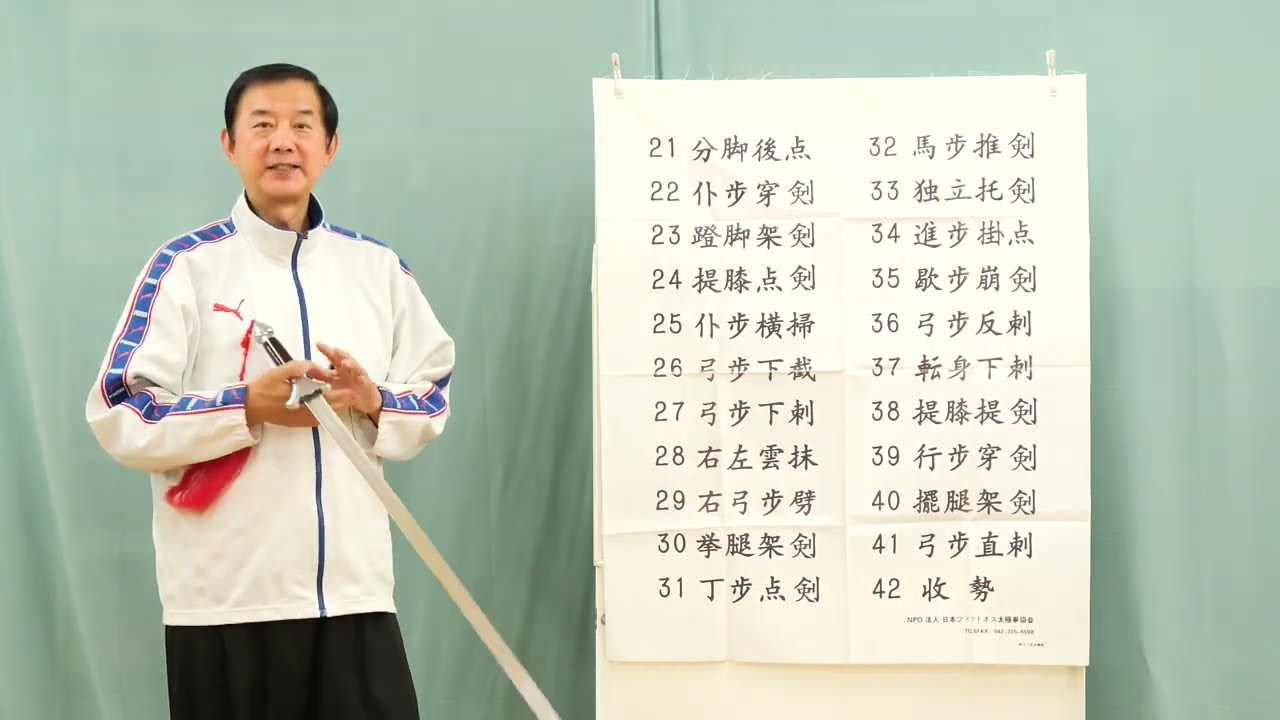 21 分脚後点
22 仆步穿剣
23 蹬脚架剣
24 提膝点剣
25 仆步横掃
26 弓步下截
27 弓步下刺
28 右左雲抹
29 右弓步劈
30 挙腿架剣
31 丁步点剣
32 馬步推剣
33 独立托剣
34 進步掛点
35 歇步崩剣
36 弓步反刺
37 転身下刺
38 提膝提剣
39 行步穿剣
40 擺腿架剣
41 弓步直刺
42 收 勢
NPO 法人 日本フィットネス太極拳協会
TEL&FAX 042-335-5598